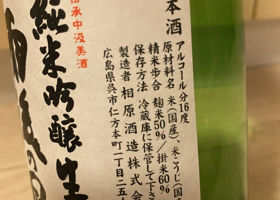 本酒
アルコール分16度
原材料名 米(国産)、米こうじ(国
精米歩合 麹米50%/掛米60%
保存方法 冷蔵庫に保管して下さ
製造者 相原酒造株式会
広島県呉市仁方本町一丁目二五
伝承中汲美酒
純米吟醸生
雨後の月